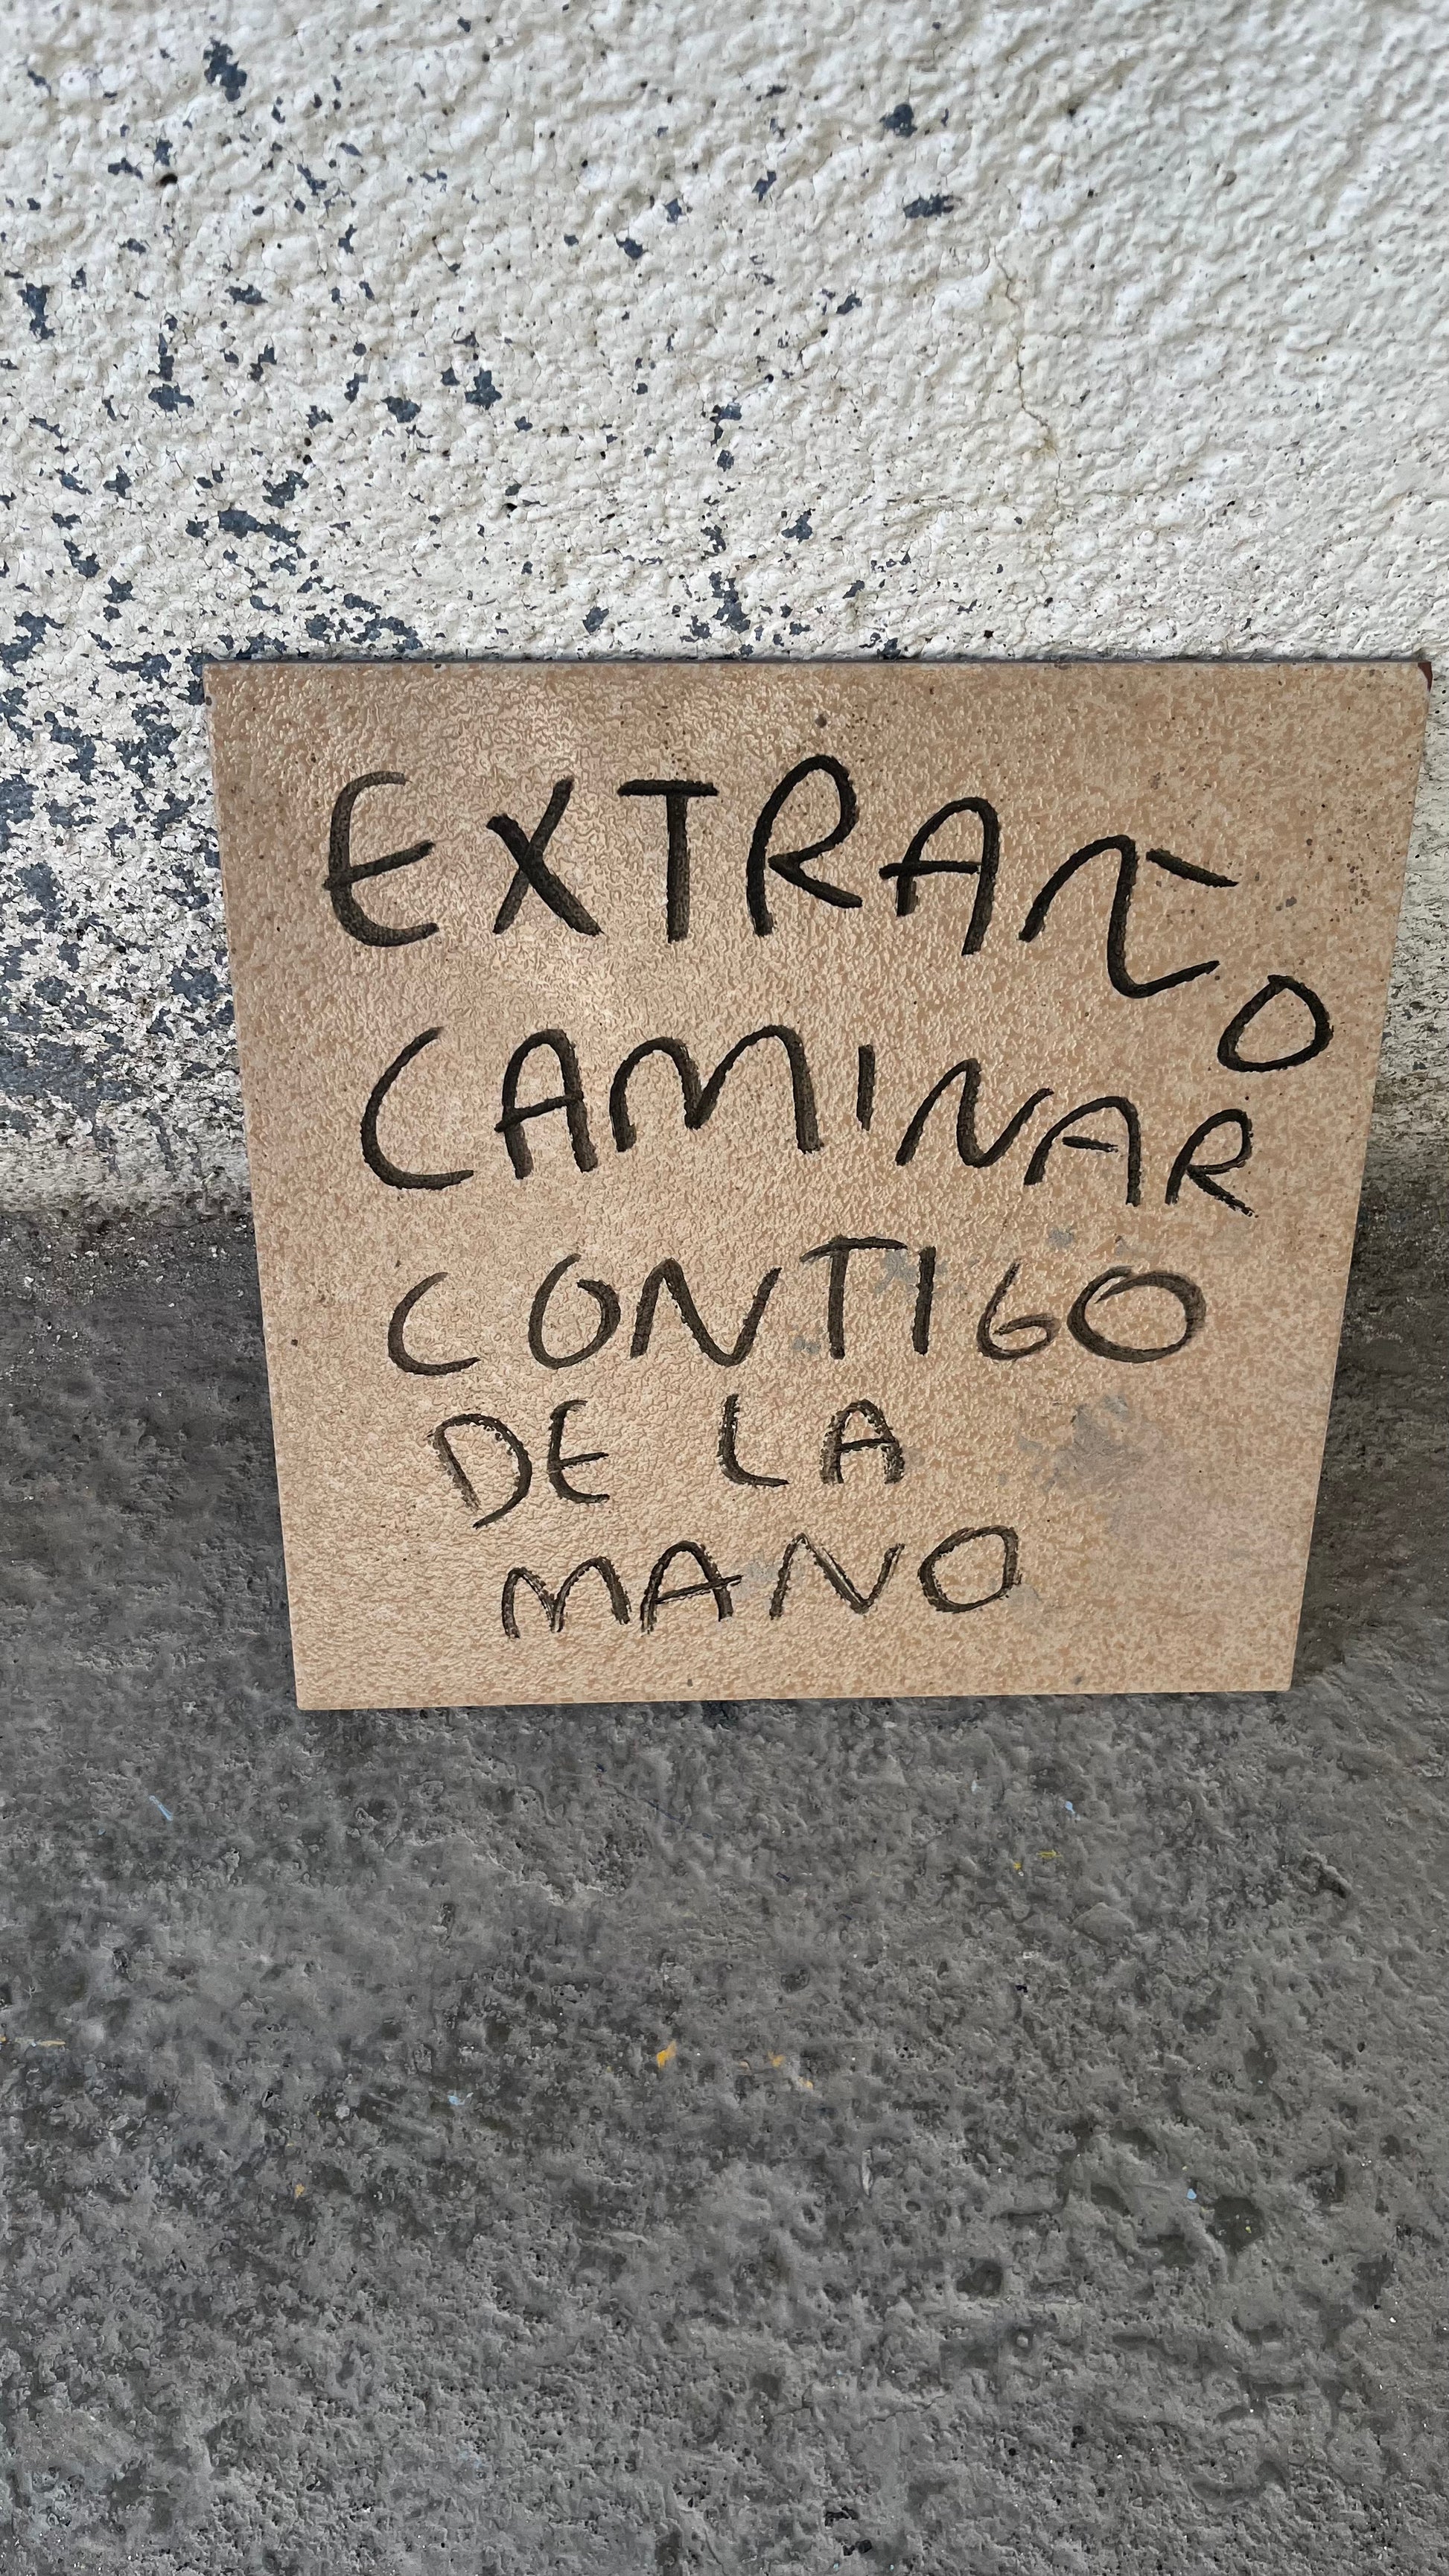 EXTRAÑO
CAMINAR
CONTIGO
DE LA
MANO